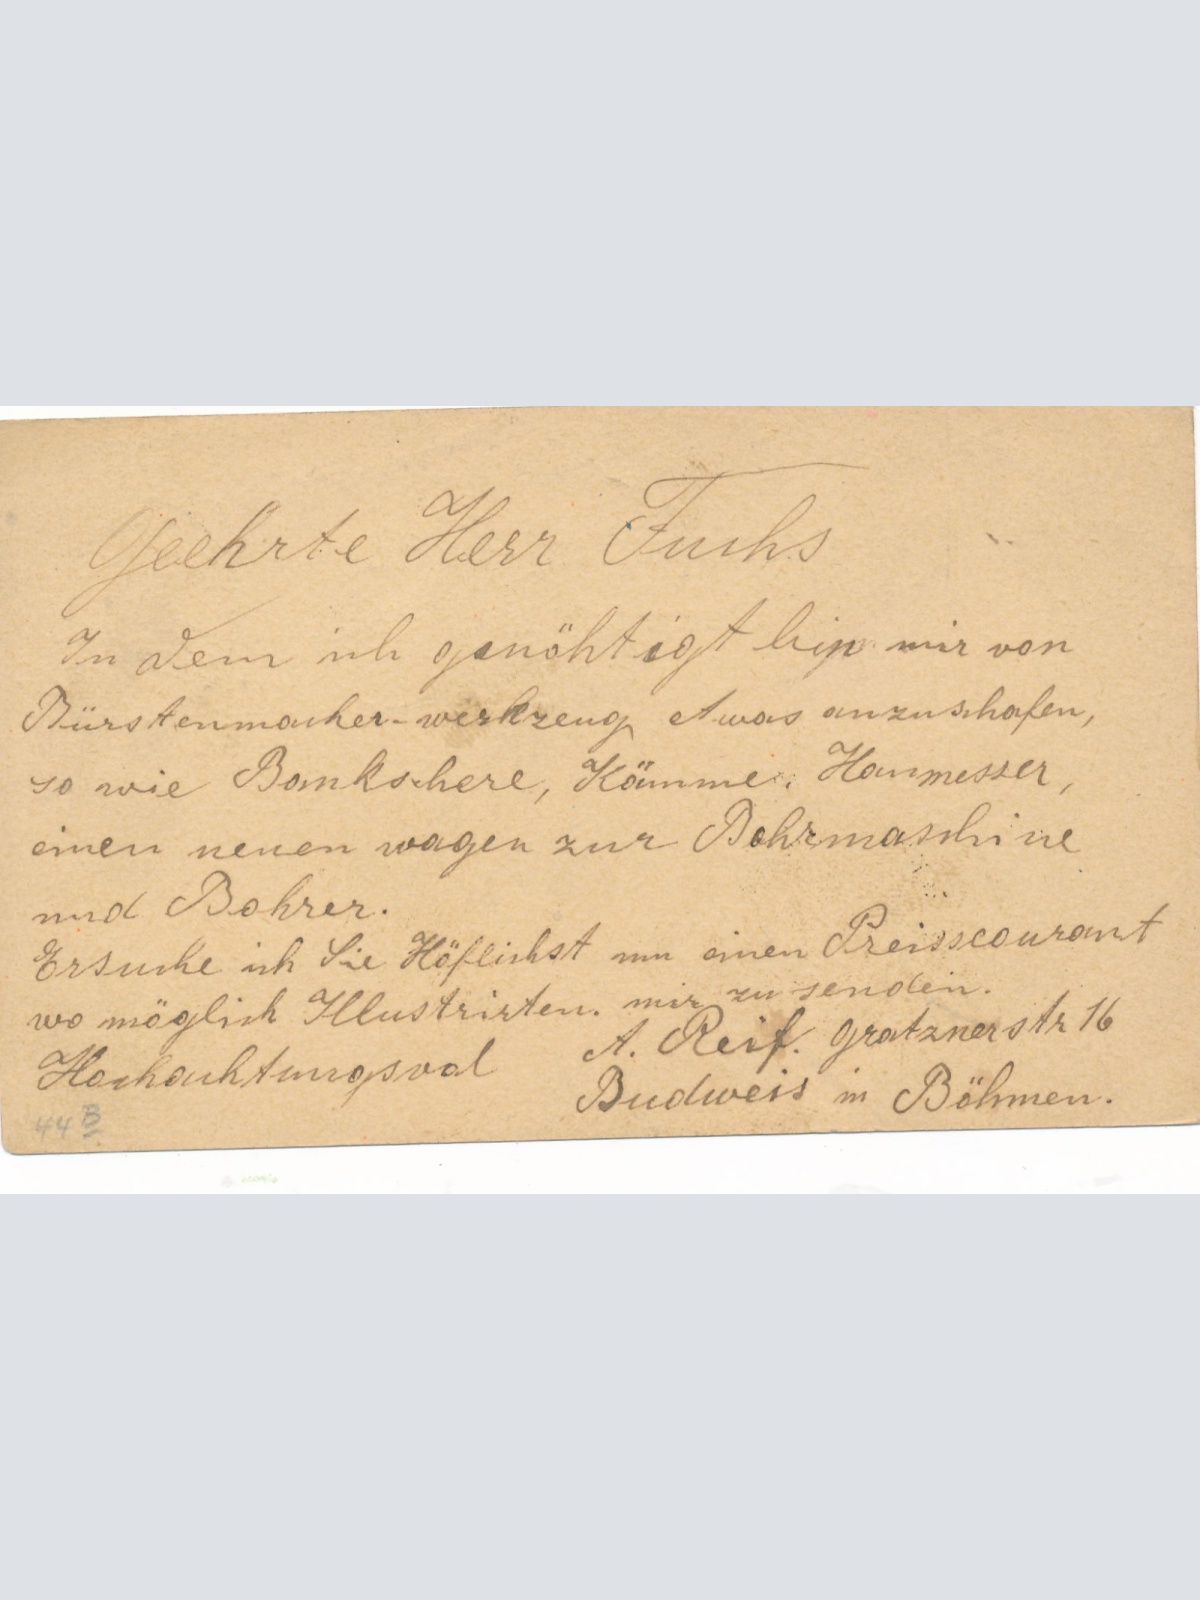 Geehrte Herr Fuchs
In dem ich genöhtigt bin mir von
Bürstenmacher-werkzeug etwas anzuschafen,
so wie Bankschere, Kämme, Haumesser,
einen neuen wagen zur Bohrmaschine
und Bohrer.
Ersuche ich Sie Höflichst um einen Preisscourant
wo möglich Illustrirten. mir zu senden.
Hochachtungsvol A. Reif. Gratznerstr 16
Budweis in Böhmen.
44 B